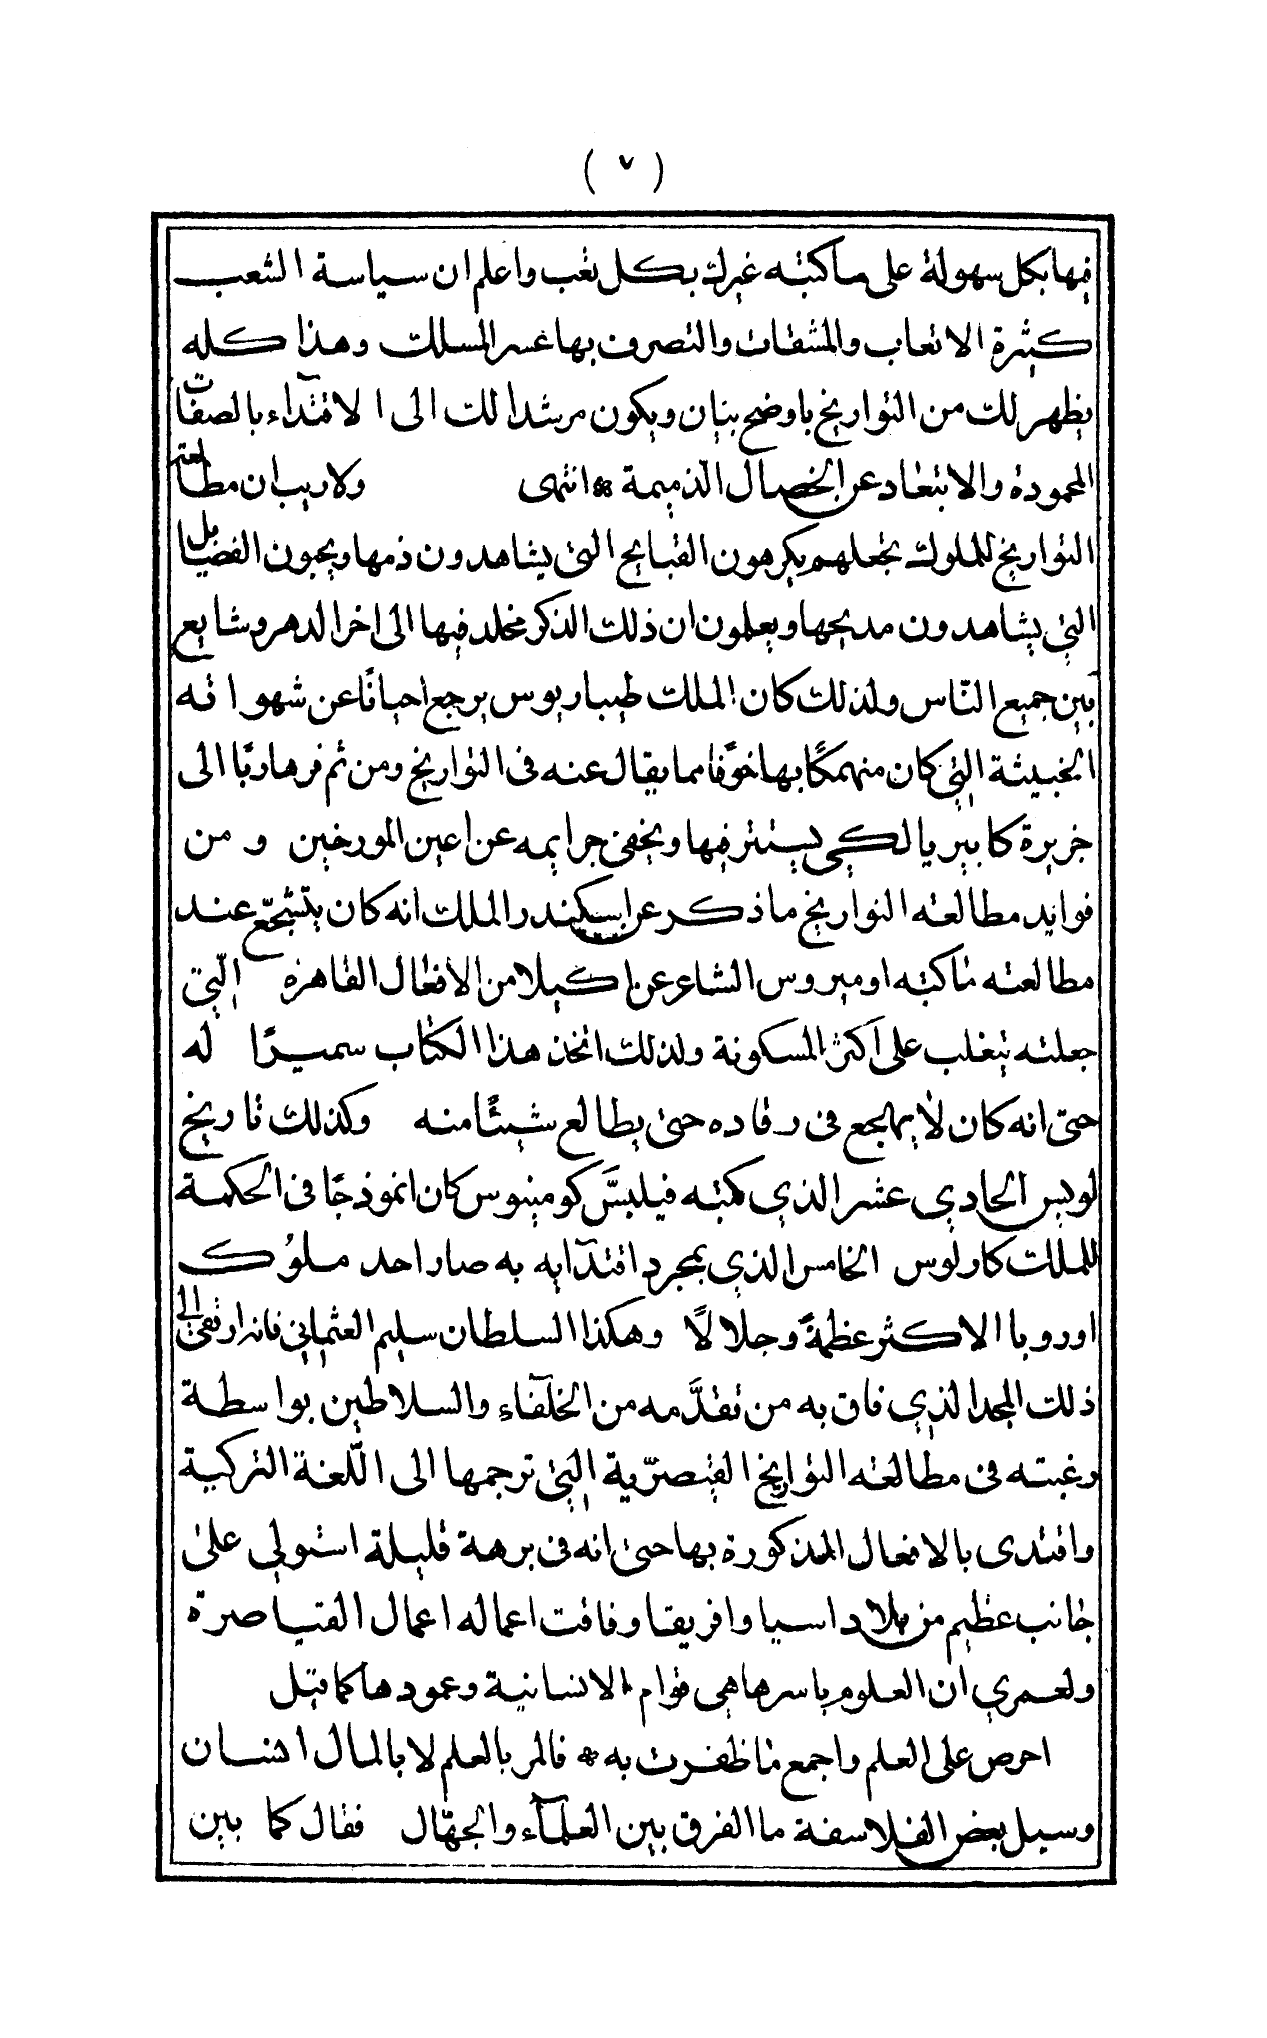 ( ٧ )
فيها بكل سهولة على ما كتبته غيرك بكل تعب واعلم ان سياسة الشعب
كثيرة الاتعاب والمشقات والتصرف بها عسر المسلك وهذا كله
يظهر لك من التواريخ باوضح بيان ويكون مرشدا لك الى الاقتدآء بالصفات
المحمودة والابتعاد عن الخصال الذميمة * انتهى ولا ريب ان مطالعة
التواريخ للملوك تجعلهم يكرهون القبايح التي يشاهدون ذمها ويحبون الفضايل
التي يشاهدون مديحها ويعلمون ان ذلك الذكر مخلد فيها الى اخر الدهر وشايع
بين جميع النّاس ولذلك كان الملك طيباريوس يرجع احيانًا عن شهواته
الخبيثة التي كان منهمكًا بها خوفًا مما يقال عنه فى التواريخ ومن ثم فر هاربًا الى
جزيرة كابيريا لكي يستتر فيها ويخفى جرايمه عن اعين المورخين ومن
فوايد مطالعته التواريخ ما ذكر عن اسكندر الملك انه كان يتشجّع عند
مطالعته ما كتبه اوميروس الشاعر عن اكيلا من الافعال القاهرة التي
جعلته يتغلب على اكثر المسكونة ولذلك اتخذ هذا الكتاب سميرًا له
حتى انه كان لا يهجع فى رقاده حتى يطالع شيئًا منه وكذلك تاريخ
لويس الحادي عشر الذي كتبه فيلبسَّ كومينوس كان انموذجًا فى الحكمة
للملك كارلوس الخامس الذي بمجرد اقتدآيه به صار احد ملوك
اوروبا الاكثر عظمةً وجلالًا وهكذا السلطان سليم العثماني فانه ارتقى الى
ذلك المجد الذي فاق به من تقدَّمه من الخلفآء والسلاطين بواسطة
رغبته فى مطالعته التواريخ القيصرّية التي ترجمها الى اللّغة التركية
واقتدى بالافعال المذكورة بها حتى انه فى برهة قليلة استولى على
جانب عظيم من بلاد اسيا وافريقا وفاقت اعماله اعمال القياصرة
ولعمري ان العلوم باسرها هي قوام الانسانية وعمودها كما قيل
احرص على العلم واجمع ما ظفرت به * فالمر بالعلم لا بالمال انسان
وسيل بعض الفلاسفة ما الفرق بين العلمآء والجهّال فقال كما بين